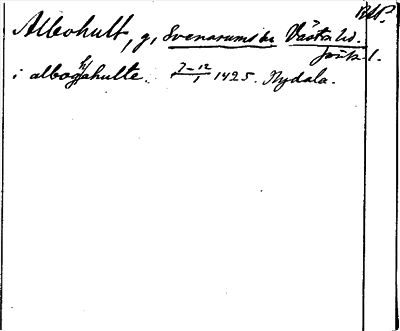 Albohult, g, Svenarums sn Västra hd.
Jönk l.
i albogahulte. 7-12/1 1425. Nydala.